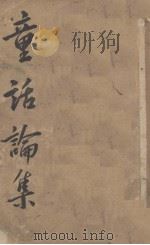 研狗
童話論集
www.mtoou.info